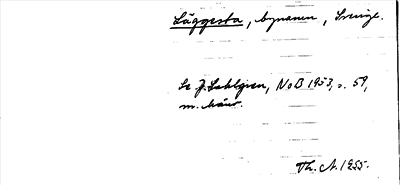 Läggesta, bynamn, Sverige.
Se J. Sahlgren, NoB 1953, s. 59,
m. hänv.
Th. A. 1955.